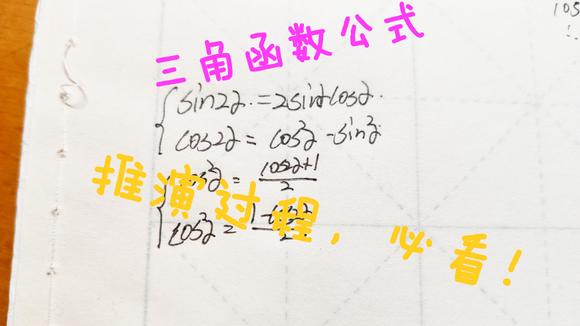 三角函数公式
sin2α = 2sinαcosα
cos2α = cos²α - sin²α
cos²α = (cos2α+1)/2
推演过程，必看！
cos²α = (1-cos2α)/2